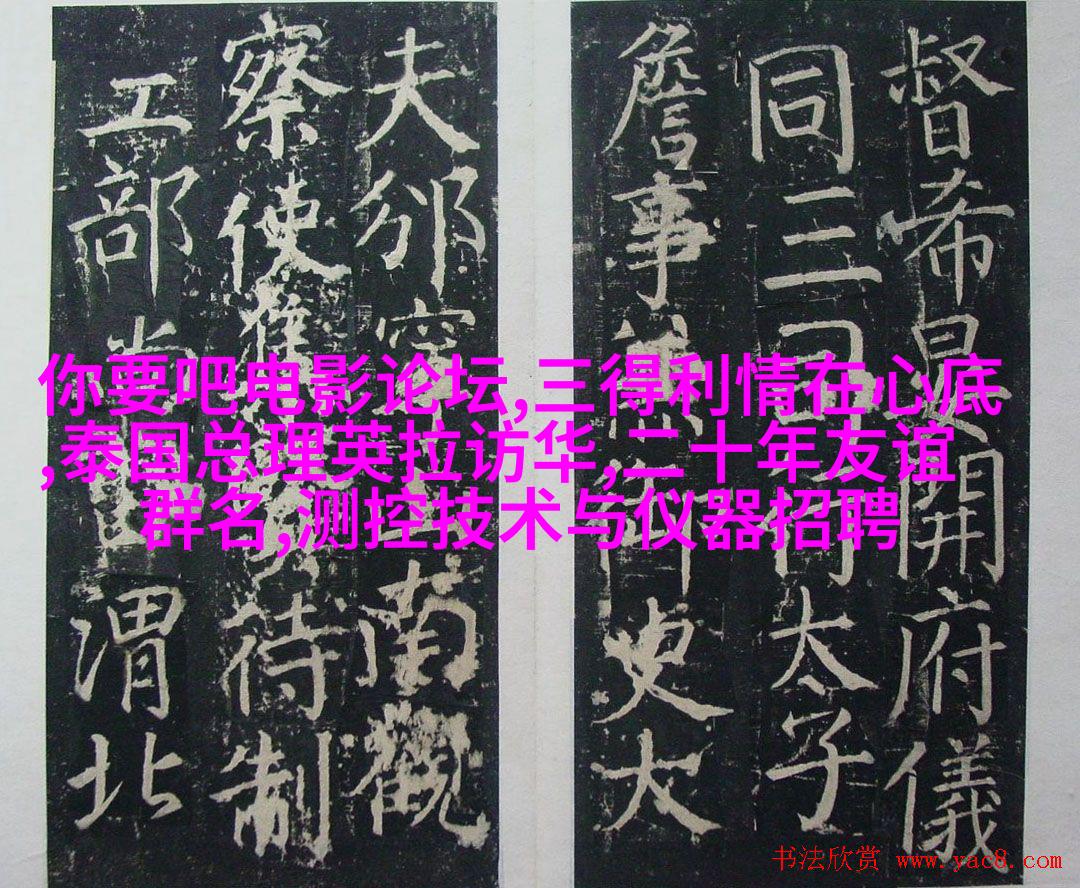 督希是開府儀
同三司太子
詹事兼御史大
夫邠南觀
察使待制
工部尚渭北
你要吧电影论坛,三得利情在心底
,泰国总理英拉访华,二十年友谊
群名,测控技术与仪器招聘
书法欣赏 www.yac8.com